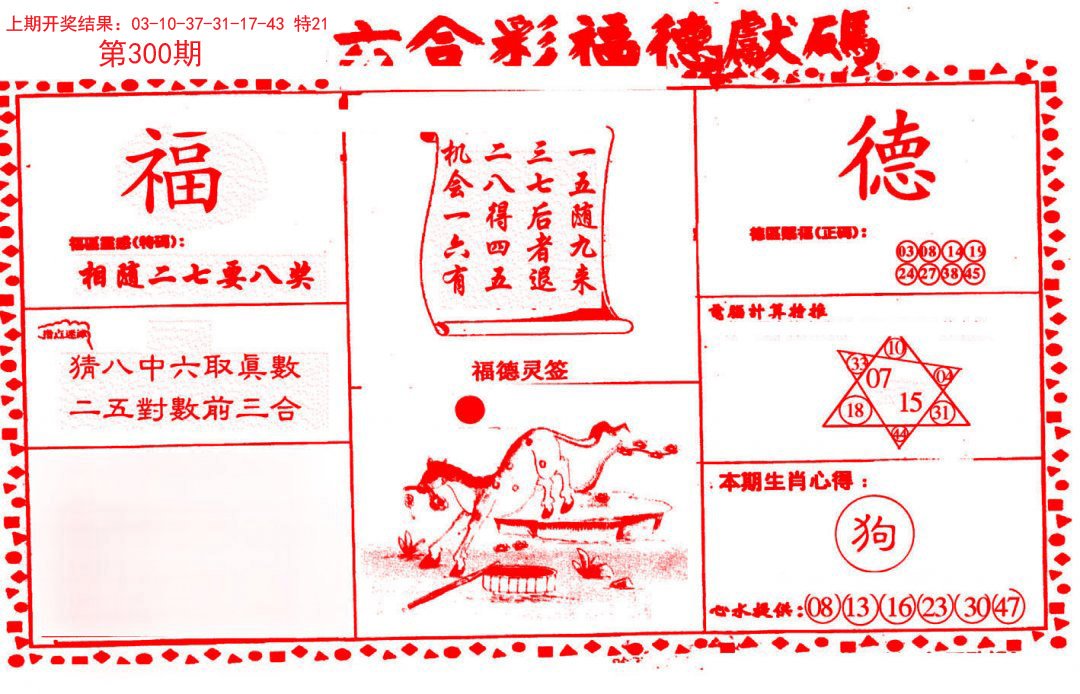 上期开奖结果：03-10-37-31-17-43 特21
第300期
六合彩福德獻碼
福
福區靈感(特码)：
相随二七要八奖
猜八中六取真數
二五對數前三合
一五随九来
三七后者退
二八得四五
机会一六有
福德灵签
德
德區賜福(正码)：
03 08 14 19
24 27 38 45
電腦計算精推
10
33 04
07
15
18 31
44
本期生肖心得：
狗
心水提供：08 13 16 23 30 47